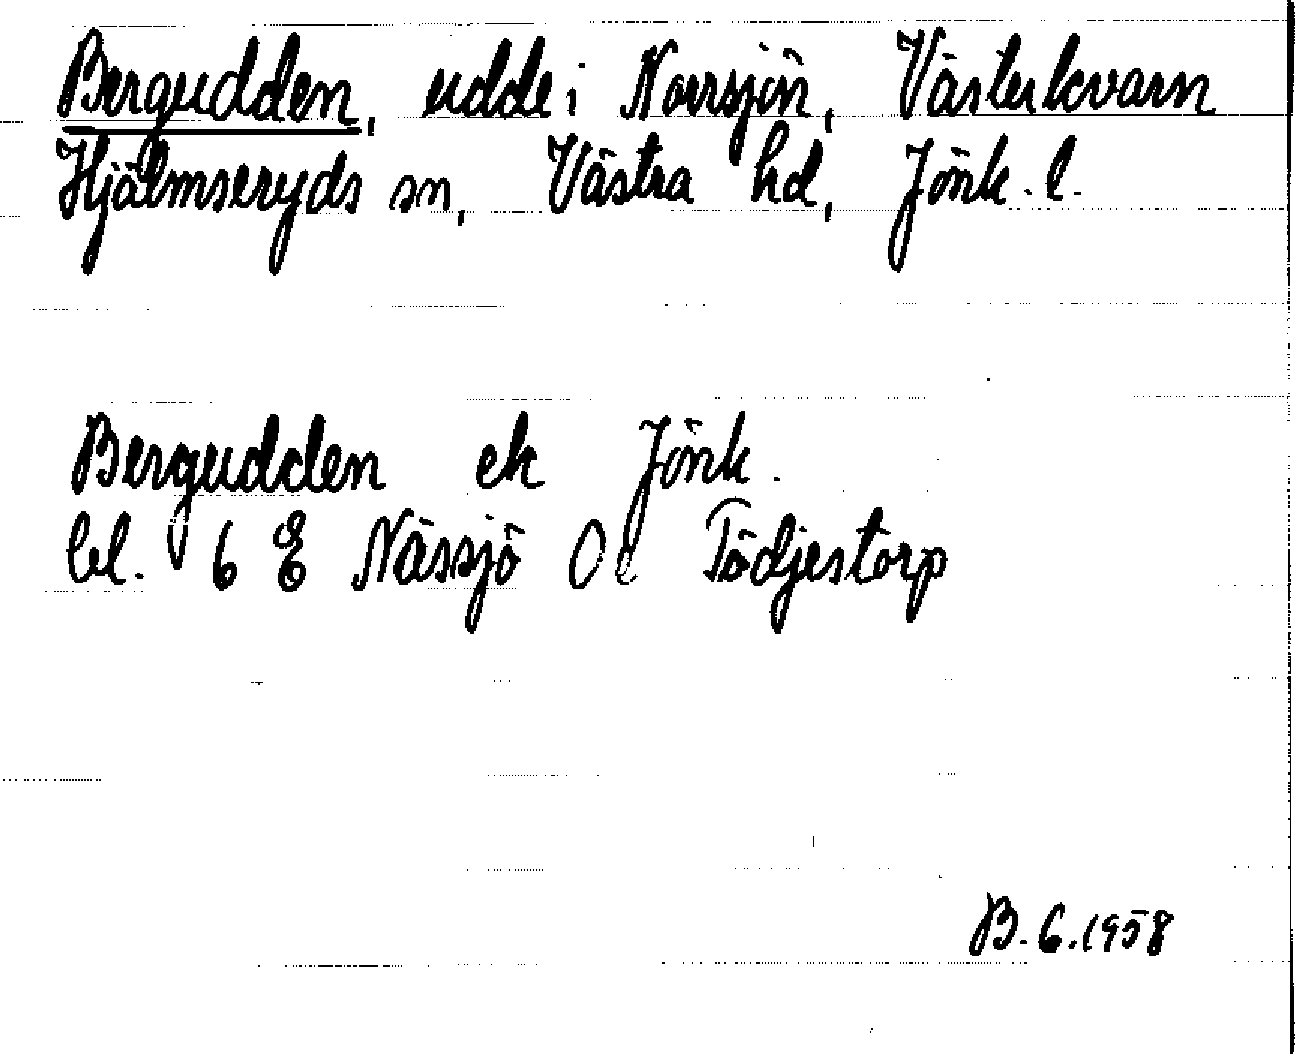 Bergudden, udde i Norrsjön, Västerkvarn
Hjälmseryds sn, Västra hd, Jönk. l.
Bergudden ek Jönk.
bl. 6 E Nässjö Od Tödjestorp
B. G. 1958